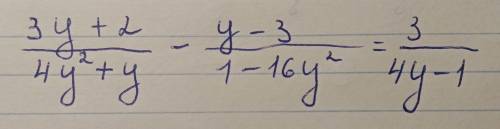 (3y + 2)/(4y² + y) - (y - 3)/(1 - 16y²) = 3/(4y - 1)